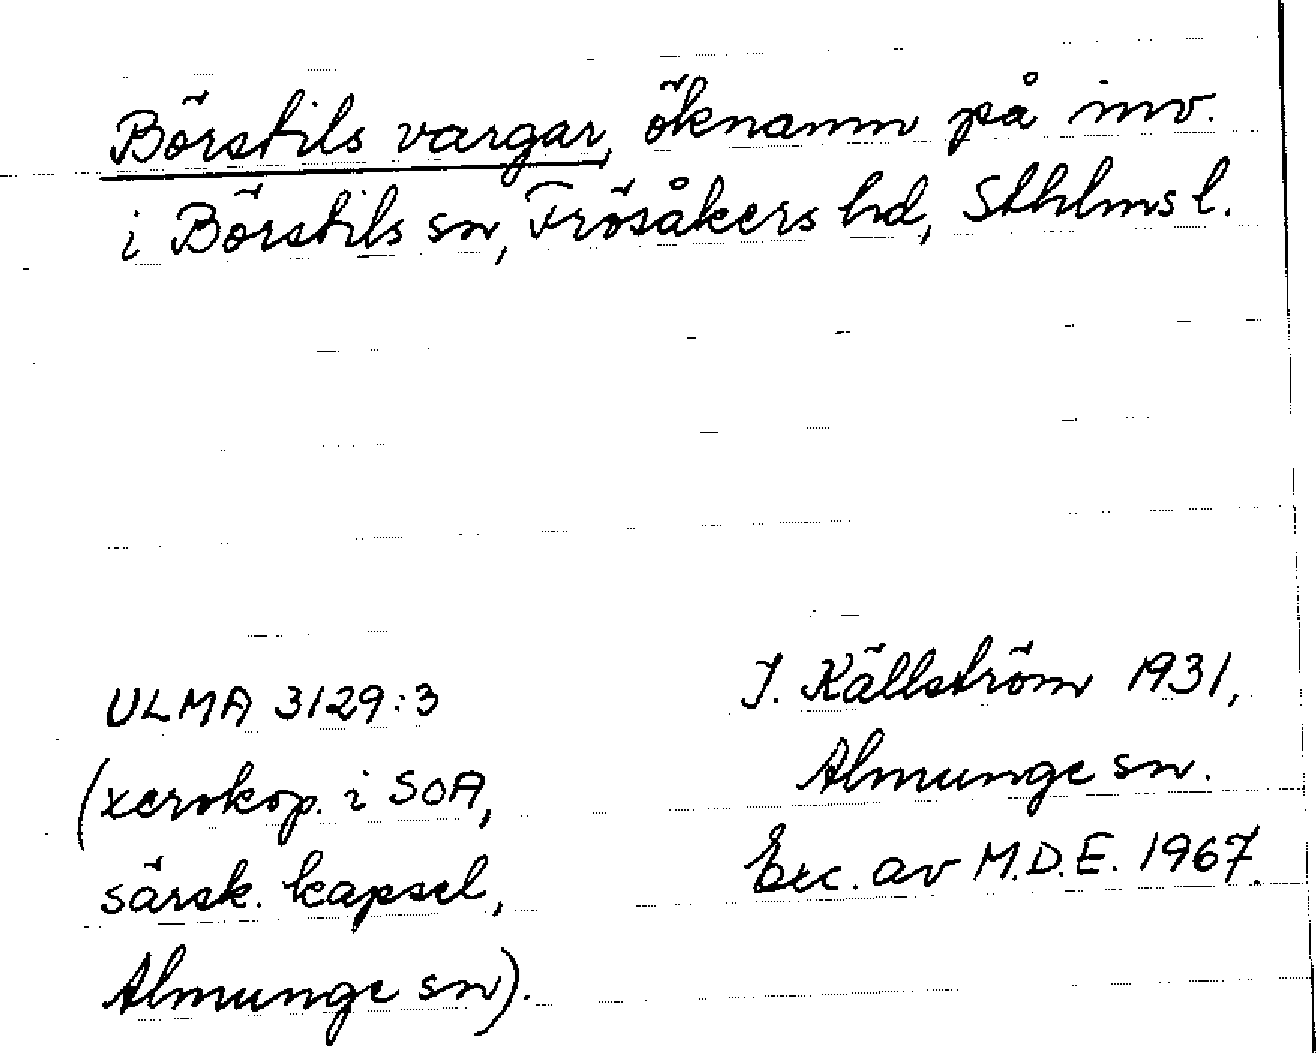 Börstils vargar, öknamn på inv.
i Börstils sn, Frösåkers hd, Sthlms l.
ULMA 3129:3
(xerokop. i SOA,
särsk. kapsel,
Almunge sn).
J. Källström 1931,
Almunge sn.
Exc. av M.D.E. 1967.